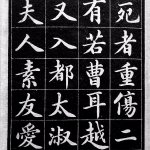 死者重傷二
有若曹耳越
又入都太淑
夫人素友愛